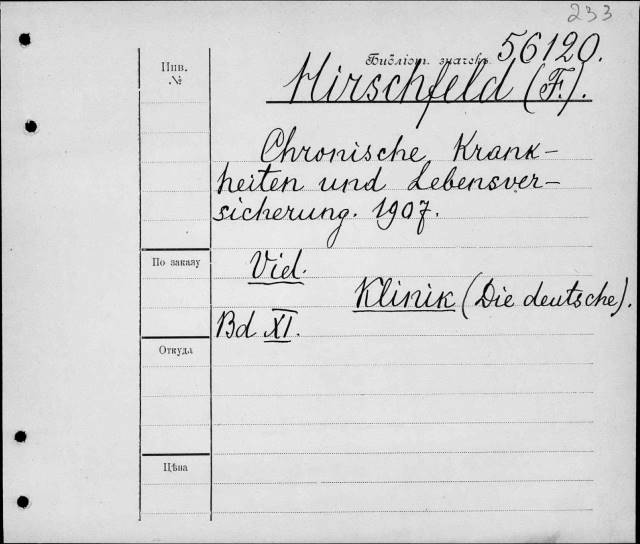 233
Инв.
№
Библіот. значекъ 56120.
Hirschfeld (F.).
Chronische Krank-
heiten und Lebensver-
sicherung. 1907.
По заказу
Vid.
Klinik (Die deutsche).
Bd XI.
Откуда
Цѣна